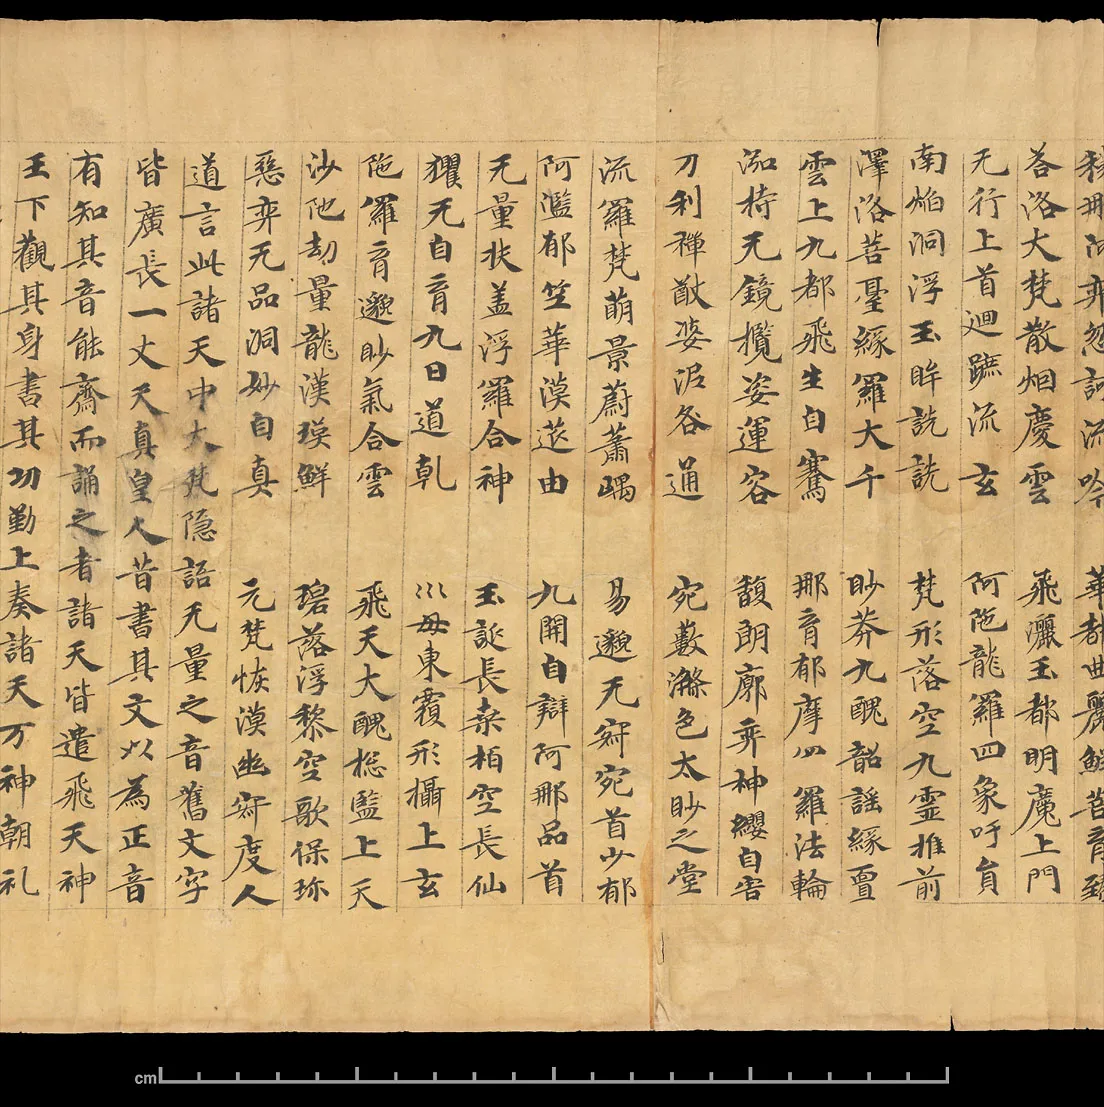 答洛大梵散烟慶雲 飛灑玉都明魔上門
无行上首迴蹠流玄 阿陁龍羅四象吁員
南焰洞浮玉眸詵詵 梵形落空九靈推前
澤洛菩臺緣羅大千 眇莽九醜韶謡緣亶
雲上九都飛生自騫 那育郁摩四羅法輪
泓持无鏡攬姿運容 馥朗廓弈神纓自宫
刀利禪猷婆泥咎通 宛藪滌色太眇之堂
流羅梵萌景蔚蕭嵎 易邈无寂宛首少郁
阿濫郁竺華漠莚由 九開自辯阿那品首
无量扶盖浮羅合神 玉誕長桒柏空長仙
玃无自育九日道乹 㘣母東覆形攝上玄
陁羅育邈眇氣合雲 飛天大醜揔監上天
沙陁劫量龍漢瑛鮮 碧落浮黎空歌保珎
惡弈无品洞妙自真 元梵恢漠幽寂度人
道言此諸天中大梵隐語无量之音舊文字
皆廣長一丈天真皇人昔書其文以為正音
有知其音能齋而誦之者諸天皆遣飛天神
王下觀其身書其功勤上奏諸天万神朝礼